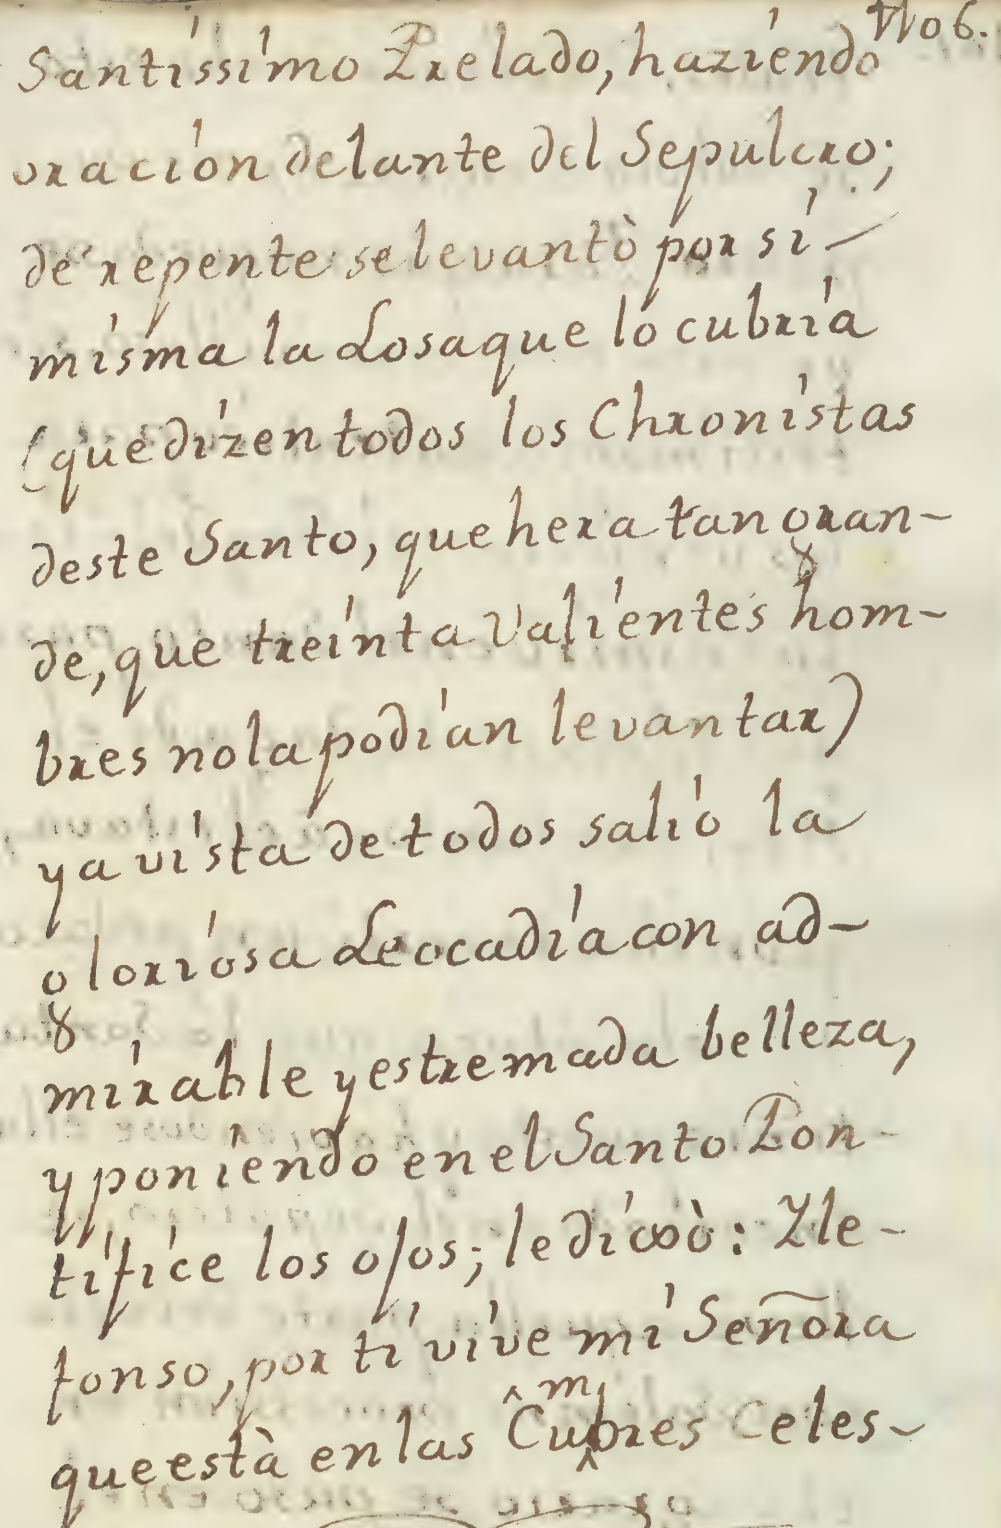 No 6.
Santissimo Prelado, haziendo
oracion delante del Sepulcro;
de repente se levantò por si-
misma la Losa que lo cubria
(que dizen todos los Chronistas
deste Santo, que hera tan gran-
de, que treinta Valientes hom-
bres no la podian levantar)
y a vista de todos salió la
gloriosa Leocadia con ad-
mirable y estremada belleza,
y poniendo en el Santo Pon-
tifice los ojos; le dixò: Ile-
fonso, por ti vive mi Señora
que està en las Cumbres Celes-